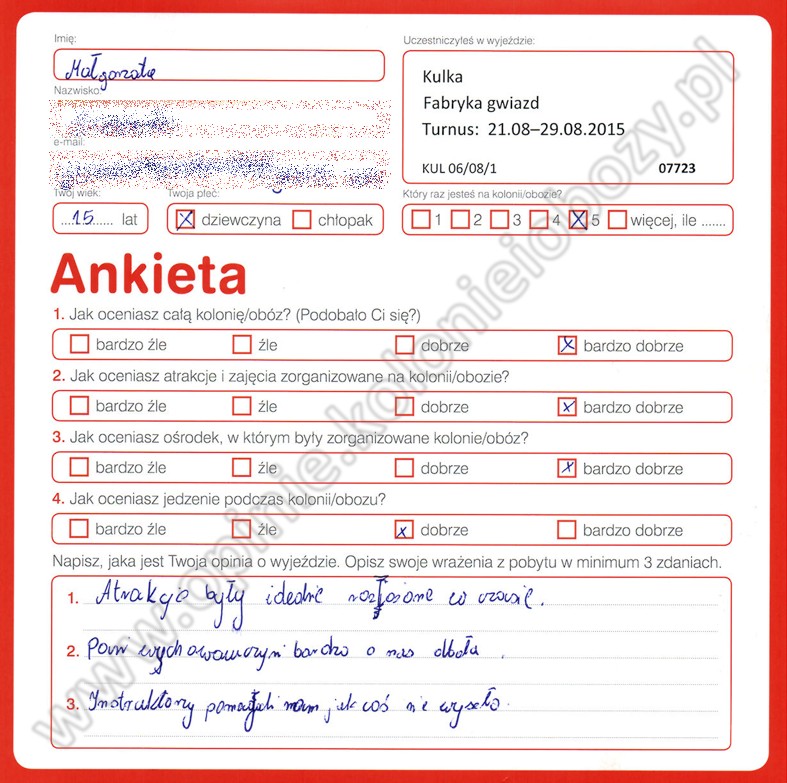 Imię:
Uczestniczyłeś w wyjeździe:
Małgorzata
Kulka
Fabryka gwiazd
Turnus: 21.08–29.08.2015
KUL 06/08/1 07723
Nazwisko:
e-mail:
Twój wiek: Twoja płeć: Który raz jesteś na kolonii/obozie?
....15...... lat dziewczyna chłopak 1 2 3 4 5 więcej, ile .......
Ankieta
1. Jak oceniasz całą kolonię/obóz? (Podobało Ci się?)
bardzo źle źle dobrze bardzo dobrze
2. Jak oceniasz atrakcje i zajęcia zorganizowane na kolonii/obozie?
bardzo źle źle dobrze bardzo dobrze
3. Jak oceniasz ośrodek, w którym były zorganizowane kolonie/obóz?
bardzo źle źle dobrze bardzo dobrze
4. Jak oceniasz jedzenie podczas kolonii/obozu?
bardzo źle źle dobrze bardzo dobrze
Napisz, jaka jest Twoja opinia o wyjeździe. Opisz swoje wrażenia z pobytu w minimum 3 zdaniach.
1. Atrakcje były idealnie rozłożone w czasie.
2. Pani wychowawczyni bardzo o nas dbała.
3. Instruktorzy pomagali nam jak coś nie wyszło.
www.opinie.kolonieiobozy.pl